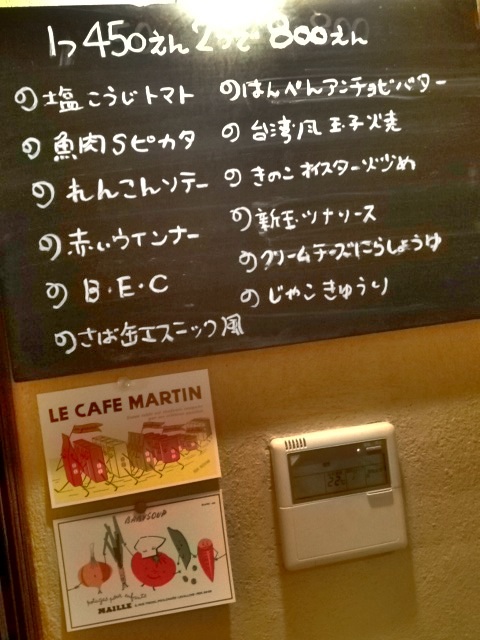 1つ450えん 2つで800えん
の塩こうじトマト
の魚肉Sピカタ
のれんこんソテー
の赤いウインナー
のB・E・C
のさば缶エスニック風
のはんぺんアンチョビバター
の台湾風玉子焼
のきのこオイスター炒め
の新玉ツナソース
のクリームチーズにらしょうゆ
のじゃこきゅうり
LE CAFE MARTIN
BABYSOUP
MAILLE